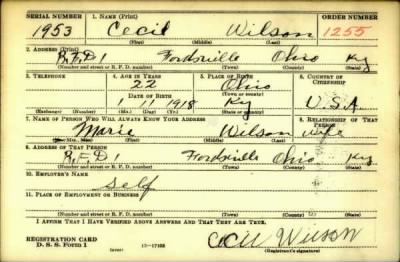 SERIAL NUMBER 1. NAME (Print) ORDER NUMBER
1953 Cecil Wilson 1255
(First) (Middle) (Last)
2. ADDRESS (Print)
R.F.D 1 Fordsville Ohio Ky
(Number and street or R. F. D. number) (Town) (County) (State)
3. TELEPHONE 4. AGE IN YEARS 5. PLACE OF BIRTH 6. COUNTRY OF CITIZENSHIP
22 Ohio
DATE OF BIRTH (Town or county)
1 11 1918 Ky U.S.A
(Exchange) (Number) (Mo.) (Day) (Yr.) (State or country)
7. NAME OF PERSON WHO WILL ALWAYS KNOW YOUR ADDRESS 8. RELATIONSHIP OF THAT PERSON
Marie Wilson wife
(Mr., Mrs., Miss) (First) (Middle) (Last)
9. ADDRESS OF THAT PERSON
R.F.D 1 Fordsville Ohio Ky
(Number and street or R. F. D. number) (Town) (County) (State)
10. EMPLOYER'S NAME
Self
11. PLACE OF EMPLOYMENT OR BUSINESS
(Number and street or R. F. D. number) (Town) (County) (State)
I AFFIRM THAT I HAVE VERIFIED ABOVE ANSWERS AND THAT THEY ARE TRUE.
REGISTRATION CARD
D. S. S. Form 1 (over) 16-17105 Cecil Wilson
(Registrant's signature)